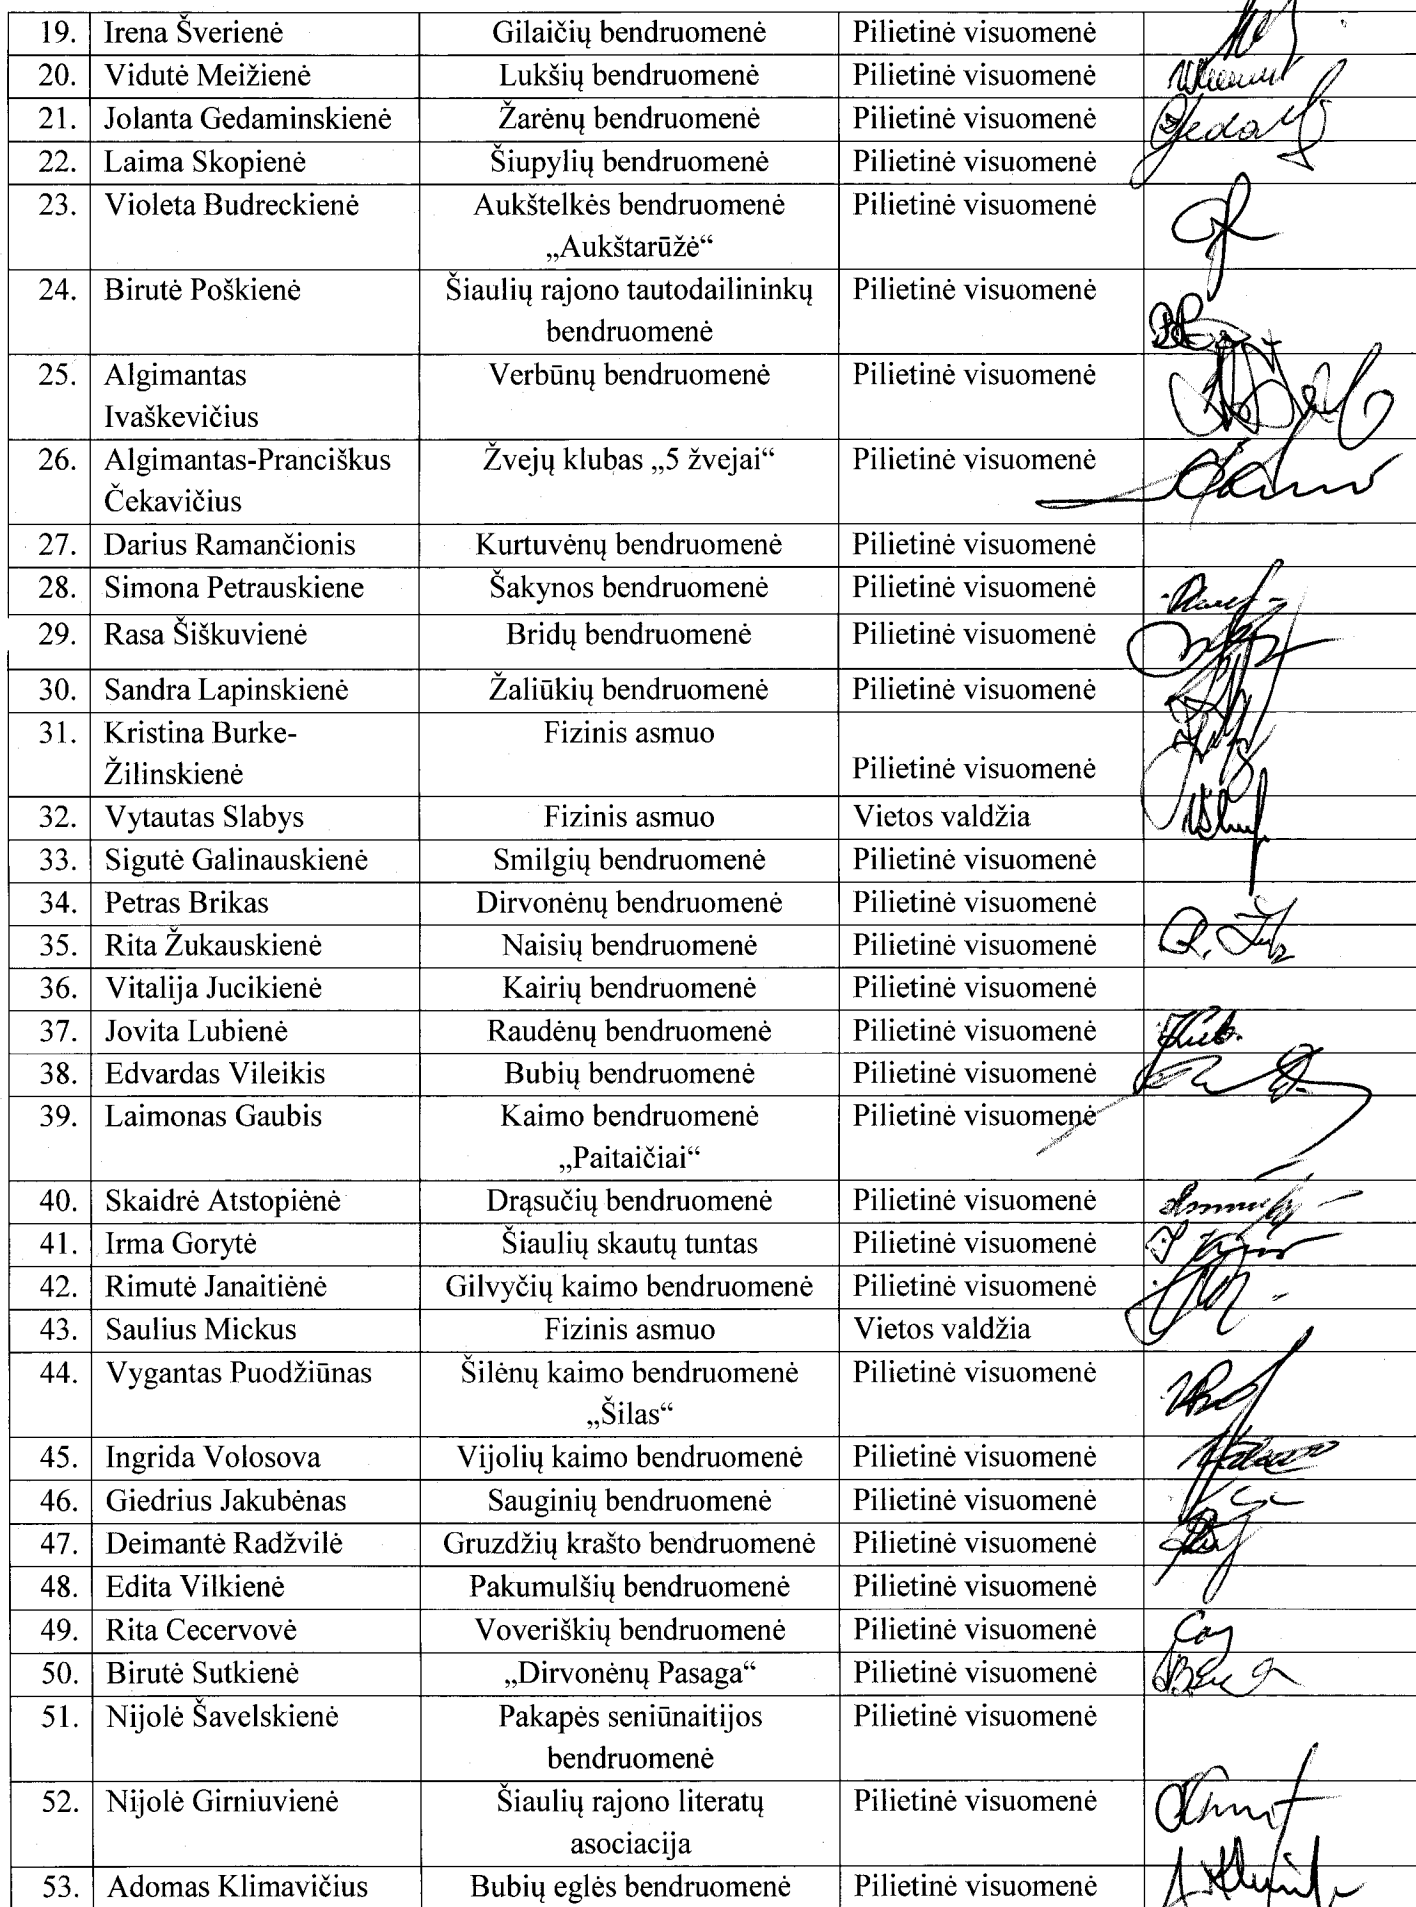 19. Irena Šverienė Gilaičių bendruomenė Pilietinė visuomenė
20. Vidutė Meižienė Lukšių bendruomenė Pilietinė visuomenė
21. Jolanta Gedaminskienė Žarėnų bendruomenė Pilietinė visuomenė
22. Laima Skopienė Šiupylių bendruomenė Pilietinė visuomenė
23. Violeta Budreckienė Aukštelkės bendruomenė Pilietinė visuomenė
„Aukštarūžė“
24. Birutė Poškienė Šiaulių rajono tautodailininkų Pilietinė visuomenė
bendruomenė
25. Algimantas Verbūnų bendruomenė Pilietinė visuomenė
Ivaškevičius
26. Algimantas-Pranciškus Žvejų klubas „5 žvejai“ Pilietinė visuomenė
Čekavičius
27. Darius Ramančionis Kurtuvėnų bendruomenė Pilietinė visuomenė
28. Simona Petrauskiene Šakynos bendruomenė Pilietinė visuomenė
29. Rasa Šiškuvienė Bridų bendruomenė Pilietinė visuomenė
30. Sandra Lapinskienė Žaliūkių bendruomenė Pilietinė visuomenė
31. Kristina Burke- Fizinis asmuo
Žilinskienė Pilietinė visuomenė
32. Vytautas Slabys Fizinis asmuo Vietos valdžia
33. Sigutė Galinauskienė Smilgių bendruomenė Pilietinė visuomenė
34. Petras Brikas Dirvonėnų bendruomenė Pilietinė visuomenė
35. Rita Žukauskienė Naisių bendruomenė Pilietinė visuomenė
36. Vitalija Jucikienė Kairių bendruomenė Pilietinė visuomenė
37. Jovita Lubienė Raudėnų bendruomenė Pilietinė visuomenė
38. Edvardas Vileikis Bubių bendruomenė Pilietinė visuomenė
39. Laimonas Gaubis Kaimo bendruomenė Pilietinė visuomenė
„Paitaičiai“
40. Skaidrė Atstopiėnė Drąsučių bendruomenė Pilietinė visuomenė
41. Irma Gorytė Šiaulių skautų tuntas Pilietinė visuomenė
42. Rimutė Janaitiėnė Gilvyčių kaimo bendruomenė Pilietinė visuomenė
43. Saulius Mickus Fizinis asmuo Vietos valdžia
44. Vygantas Puodžiūnas Šilėnų kaimo bendruomenė Pilietinė visuomenė
„Šilas“
45. Ingrida Volosova Vijolių kaimo bendruomenė Pilietinė visuomenė
46. Giedrius Jakubėnas Sauginių bendruomenė Pilietinė visuomenė
47. Deimantė Radžvilė Gruzdžių krašto bendruomenė Pilietinė visuomenė
48. Edita Vilkienė Pakumulšių bendruomenė Pilietinė visuomenė
49. Rita Cecervovė Voveriškių bendruomenė Pilietinė visuomenė
50. Birutė Sutkienė „Dirvonėnų Pasaga“ Pilietinė visuomenė
51. Nijolė Šavelskienė Pakapės seniūnaitijos Pilietinė visuomenė
bendruomenė
52. Nijolė Girniuvienė Šiaulių rajono literatų Pilietinė visuomenė
asociacija
53. Adomas Klimavičius Bubių eglės bendruomenė Pilietinė visuomenė